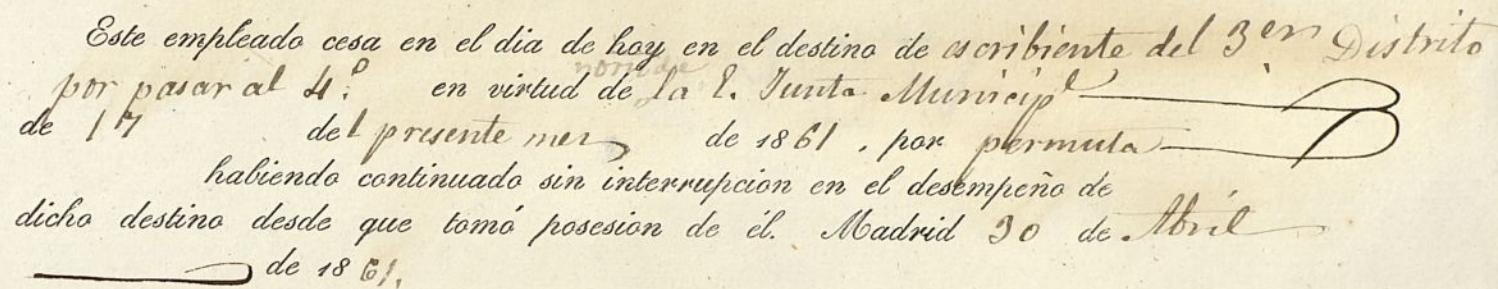 Este empleado cesa en el dia de hoy en el destino de escribiente del 3er Distrito
por pasar al 4.º en virtud de nomde la E. Junta Municipl
de 17 del presente mes de 1861, por permuta
habiendo continuado sin interrupcion en el desempeño de
dicho destino desde que tomó posesion de él. Madrid 30 de Abril
de 1861.